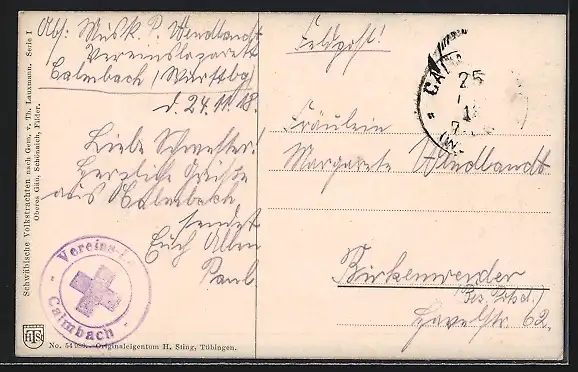 Schwäbische Volkstrachten nach Gem. v. Th. Lauxmann. Serie I
Oberes Gäu, Schönaich, Filder.
Abs: Musk. P. Wendlandt
Vereinslazarett
Calmbach / Württbg.
d. 24.11.18.
Liebe Schwester!
Herzliche Grüße
aus Calmbach
sendet
Euch Allen
Paul
Vereins-
Calmbach
HSt
No. 54 Originaleigentum H. Sting, Tübingen.
Feldpost!
CA
25
(W.
Fräulein
Margarete Wendlandt
Birkenwerder
(Bez. Potsd.)
Havelstr. 62.